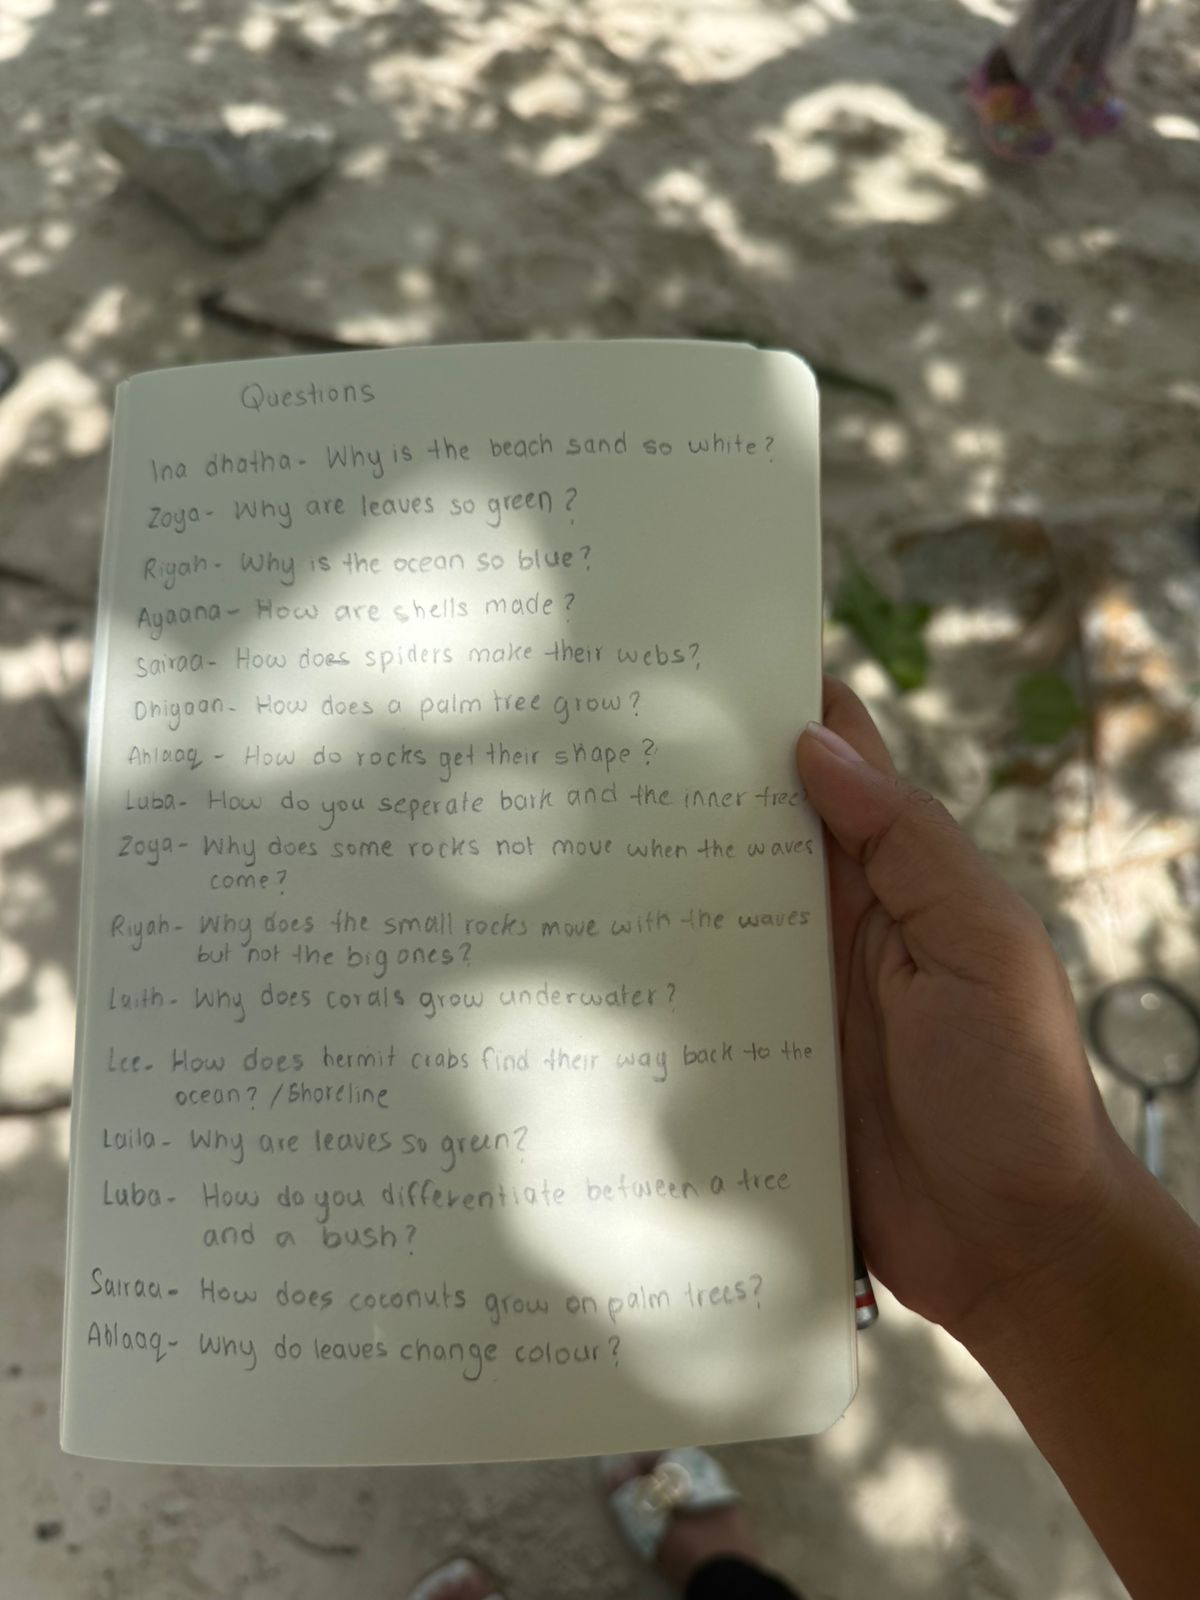 Questions
Ina dhatha - Why is the beach sand so white?
Zoya - Why are leaves so green?
Riyah - Why is the ocean so blue?
Ayaana - How are shells made?
Sairaa - How does spiders make their webs?
Dhigaan - How does a palm tree grow?
Ahlaaq - How do rocks get their shape?
Luba - How do you seperate bark and the inner tree
Zoya - Why does some rocks not move when the waves
come?
Riyah - Why does the small rocks move with the waves
but not the big ones?
Laith - Why does corals grow underwater?
Lee - How does hermit crabs find their way back to the
ocean? / Shoreline
Laila - Why are leaves so green?
Luba - How do you differentiate between a tree
and a bush?
Sairaa - How does coconuts grow on palm trees?
Ahlaaq - Why do leaves change colour?